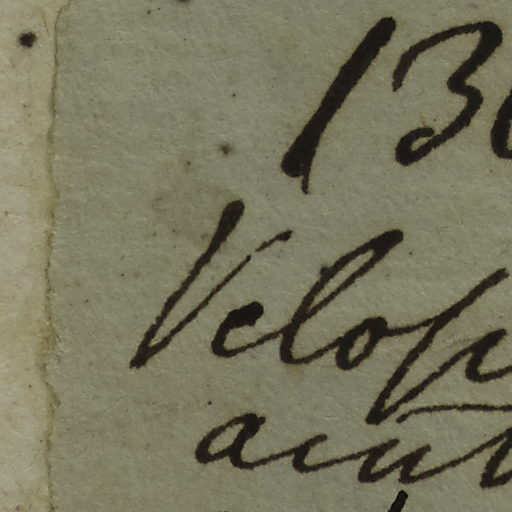 13
Velop
acut